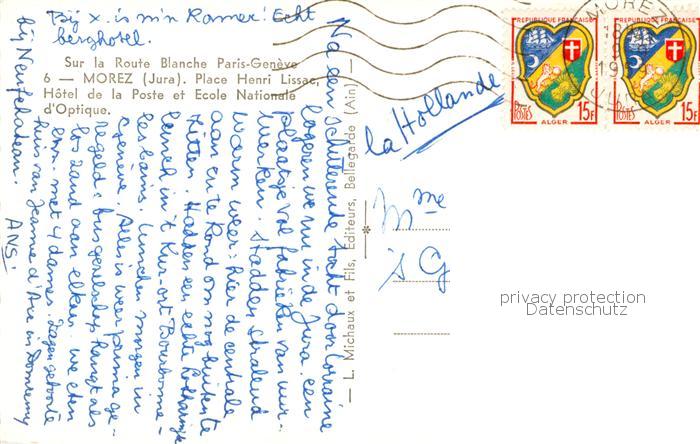 Bij x. is m'n Kamer! Echt
berghotel.
Sur la Route Blanche Paris-Genève
6 — MOREZ (Jura). Place Henri Lissac,
Hôtel de la Poste et Ecole Nationale
d'Optique.
Na een schitterende tocht door Lorraine
logeren we nu in de Jura. een
plaatsje vol fabrieken van uur-
werken. Hadden stralend
warm weer: hier de centrale
aan en te rond om nog buiten te
zitten. Hadden een echte
lunch in 't Kur-ort Bourbonne-
les bains. Lunchen morgen in
Genève. Alles is weer prima ge-
regeld & busgezelschap hangt als
los zand aan elkaar. we eten
met 4 dames. Zagen geboorte
huis van Jeanne d'Arc in Domremy
bij Neufchateau.
ANS.
— L. Michaux et Fils, Editeurs, Bellegarde (Ain) —
la Hollande
Mme
S G
REPUBLIQUE FRANÇAISE
POSTES
15F
ALGER
REPUBLIQUE FRANÇAISE
POSTES
15F
ALGER
MOREZ
18
19
privacy protection
Datenschutz